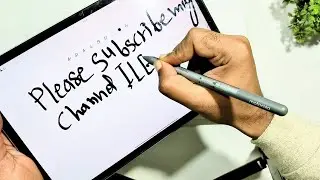 Please subscribe my
channel